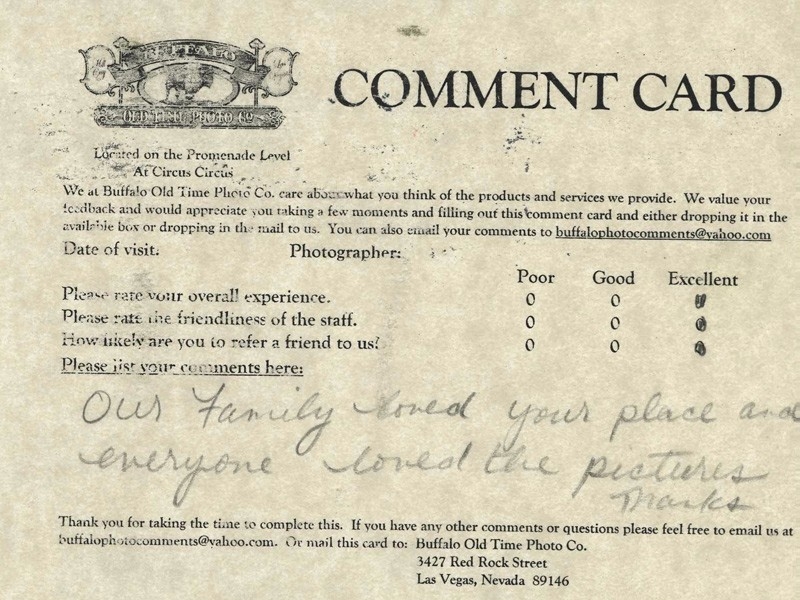 BUFFALO
OLD TIME PHOTO CO
COMMENT CARD
Located on the Promenade Level
At Circus Circus
We at Buffalo Old Time Photo Co. care about what you think of the products and services we provide. We value your
feedback and would appreciate you taking a few moments and filling out this comment card and either dropping it in the
available box or dropping in the mail to us. You can also email your comments to buffalophotocomments@yahoo.com
Date of visit: Photographer:
Poor Good Excellent
Please rate your overall experience. 0 0 0
Please rate the friendliness of the staff. 0 0 0
How likely are you to refer a friend to us? 0 0 0
Please list your comments here:
Our Family loved your place and
everyone loved the pictures
Thanks
Thank you for taking the time to complete this. If you have any other comments or questions please feel free to email us at
buffalophotocomments@yahoo.com. Or mail this card to: Buffalo Old Time Photo Co.
3427 Red Rock Street
Las Vegas, Nevada 89146